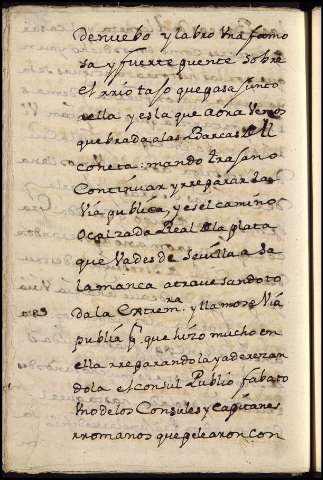 denuebo y labro Vna famo
sa y fuerte puente sobre
el rrio taJo que pasa junto
aella y es la que aora Vemos
quebrada a las Barcas de Al
coneta: mando trasano
Continuar y rreparar la
Via publica, y es el camino
o calzada Real de la plata
que Va desde Sevilla a Sa
lamanca atravesando to
da la Extremra. y llamose Via
publia q. que hizo mucho en
ella rreparandola y aderezan
dola el Consul Publio fabato
Vno de los Consules y capitanes
rromanos que pelearon con